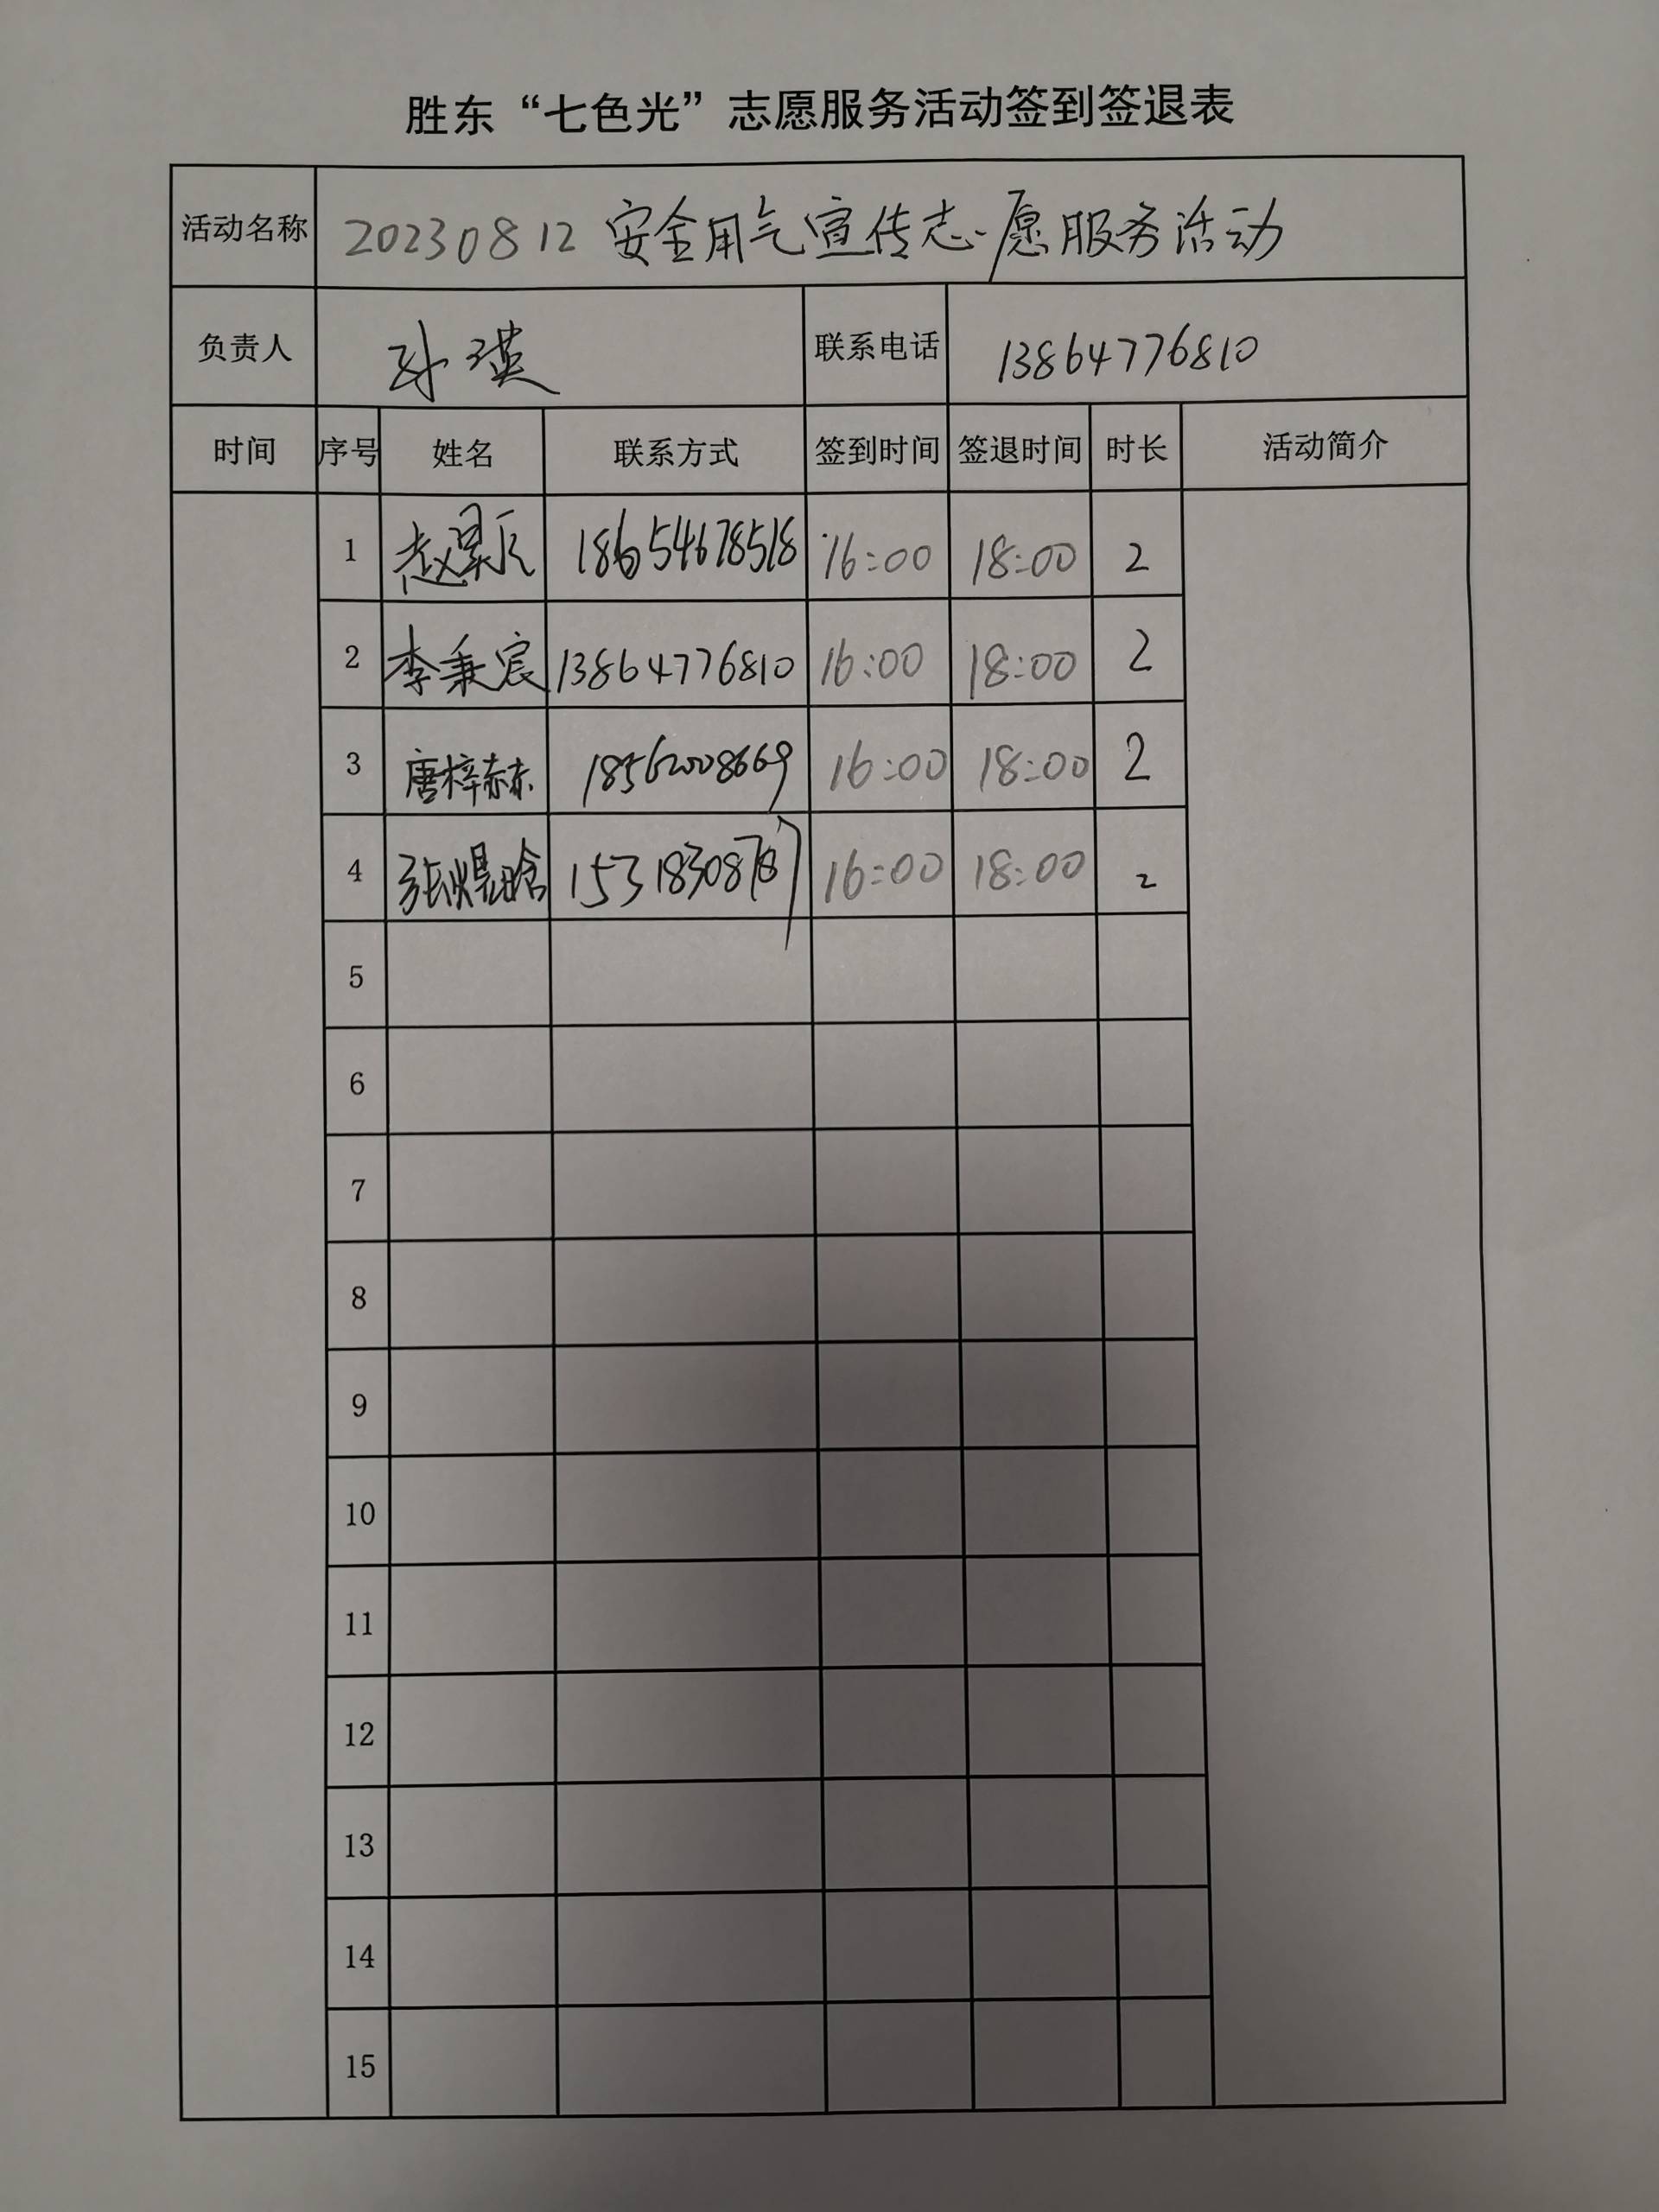 胜东“七色光”志愿服务活动签到签退表
活动名称 20230812 安全用气宣传志愿服务活动
负责人 孙瑛 联系电话 13864776810
时间 序号 姓名 联系方式 签到时间 签退时间 时长 活动简介
1 赵 18654678518 16:00 18:00 2
2 李秉宸 13864776810 16:00 18:00 2
3 唐梓赫 18562008669 16:00 18:00 2
4 张焜晗 16:00 18:00 2
5
6
7
8
9
10
11
12
13
14
15